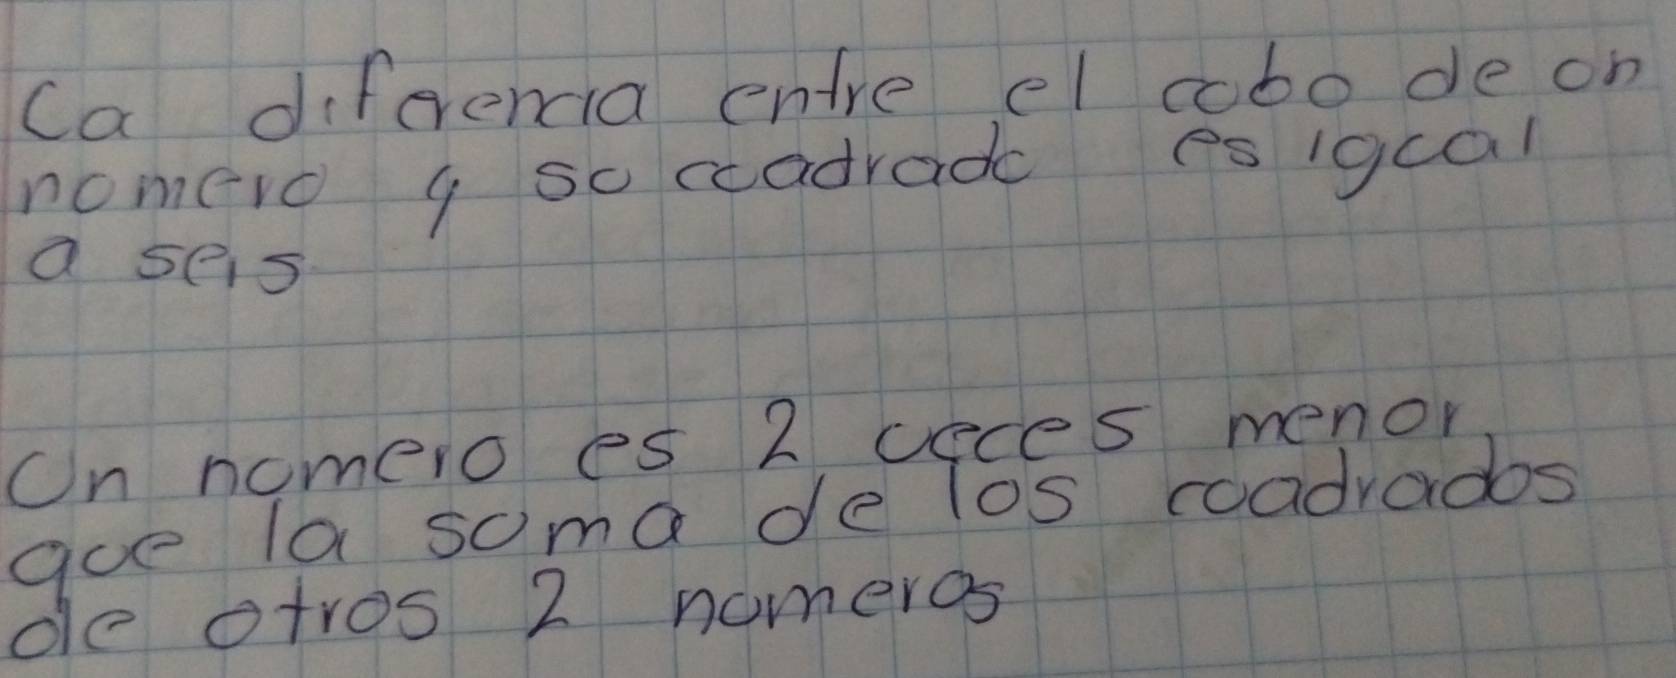 La diferencia entre el cubo de un
numero y su cuadrado es igual
a seis
Un numero es 2 veces menor
que la suma de los cuadrados
de otros 2 numeros